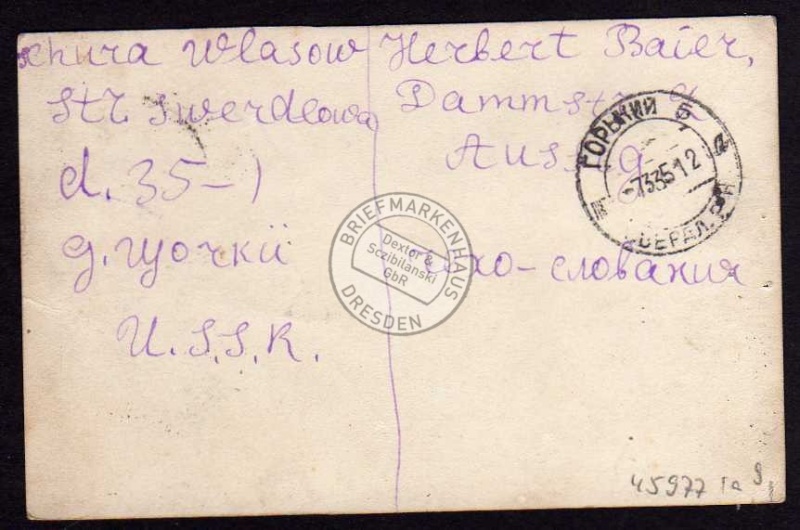 Schura Wlasow
str. Swerdlowa
d. 35-1
g.
U.S.S.R.
Herbert Baier,
Dammstr.
Aussig
-словакия
ГОРЬКИЙ 5
-7.3.35.12
BRIEFMARKENHAUS
Dextor &
Sczibilanski
GbR
DRESDEN
45977 1a